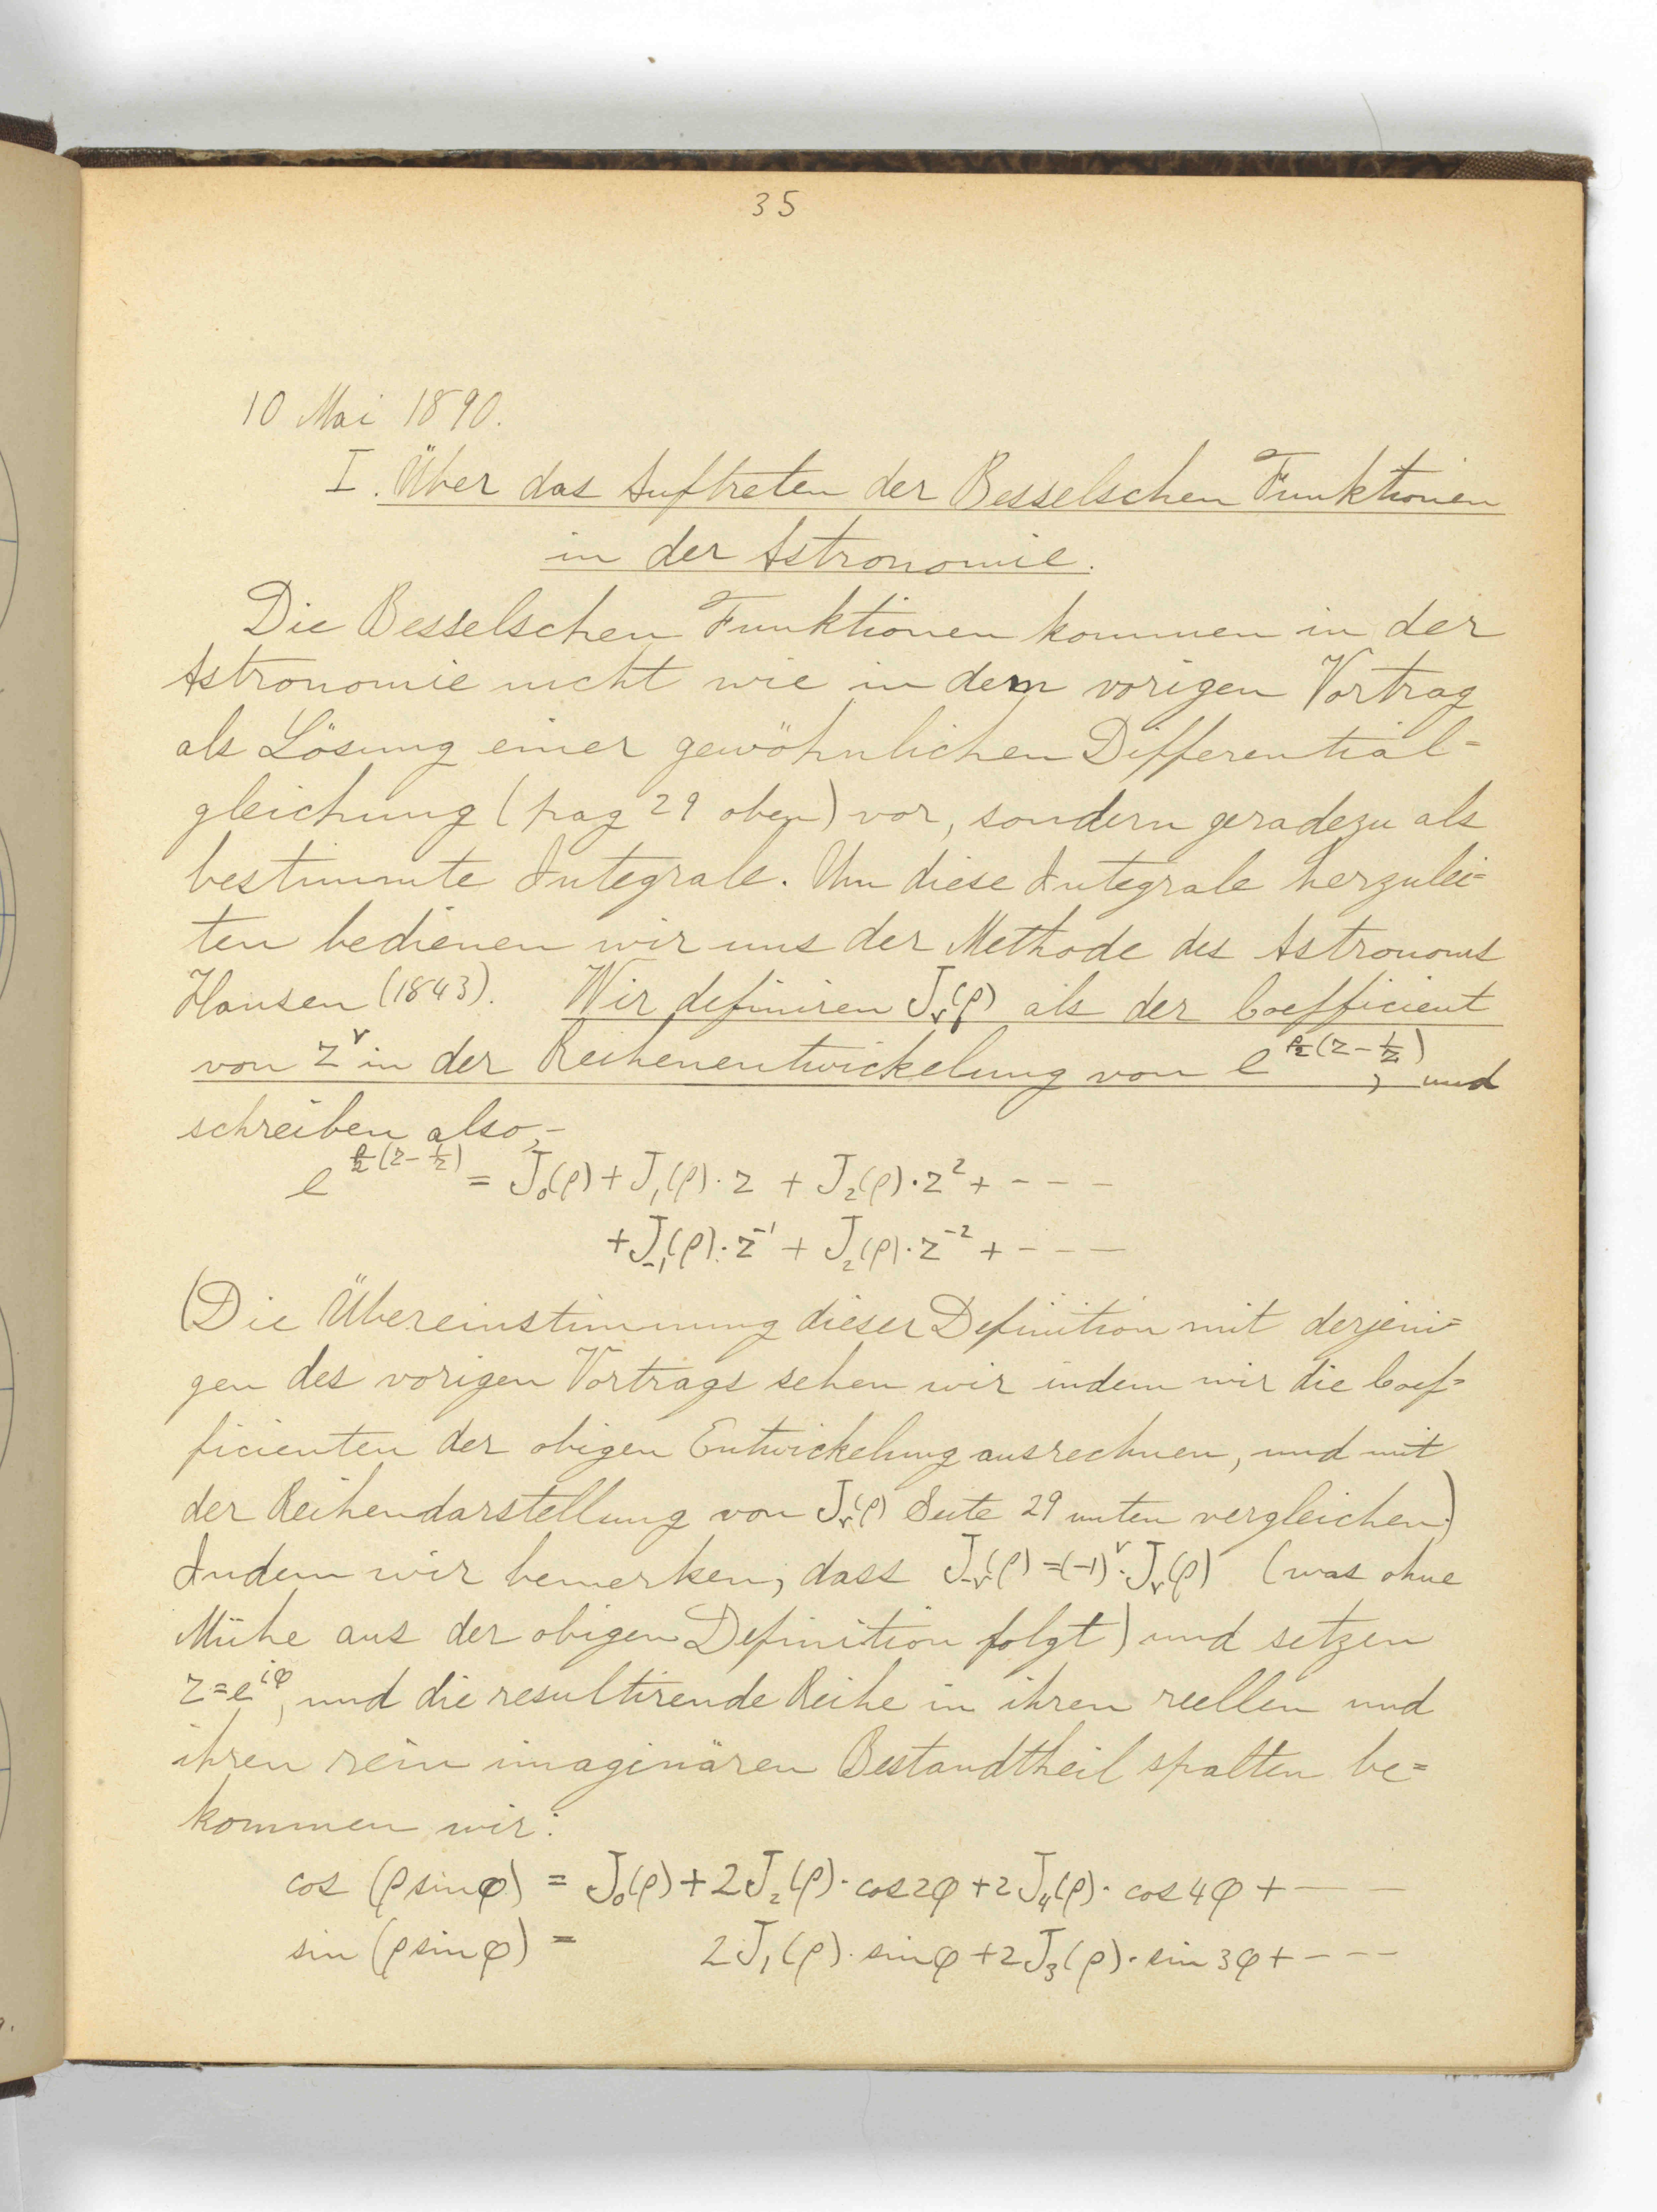 35
10 Mai 1890.
I. Über das Auftreten der Besselschen Funktionen
in der Astronomie.
Die Besselschen Funktionen kommen in der
Astronomie nicht wie in dem vorigen Vortrag
als Lösung einer gewöhnlichen Differential=
gleichung (pag 29 oben) vor, sondern geradezu als
bestimmte Integrale. Um diese Integrale herzulei=
ten bedienen wir uns der Methode des Astronoms
Hansen (1843). Wir definiren J_ν(ρ) als der Coefficient
von z^ν in der Reihenentwickelung von e^{ρ/2(z-1/z)}, und
schreiben also;-
e^{ρ/2(z-1/z)} = J₀(ρ) + J₁(ρ)·z + J₂(ρ)·z² + - - -
+ J₋₁(ρ)·z⁻¹ + J₂(ρ)·z⁻² + - - -
(Die Übereinstimmung dieser Definition mit derjeni=
gen des vorigen Vortrags sehen wir indem wir die Coef=
ficienten der obigen Entwickelung ausrechnen, und mit
der Reihendarstellung von J_ν(ρ) Seite 29 unten vergleichen.)
Indem wir bemerken, dass J_{-ν}(ρ) = (-1)^ν·J_ν(ρ) (was ohne
Mühe aus der obigen Definition folgt) und setzen
z=e^{iφ}, und die resultirende Reihe in ihren reellen und
ihren rein imaginären Bestandtheil spalten be=
kommen wir:
cos (ρ sin φ) = J₀(ρ) + 2J₂(ρ)·cos 2φ + 2J₄(ρ)·cos 4φ + - -
sin (ρ sin φ) = 2J₁(ρ)·sin φ + 2J₃(ρ)·sin 3φ + - - -